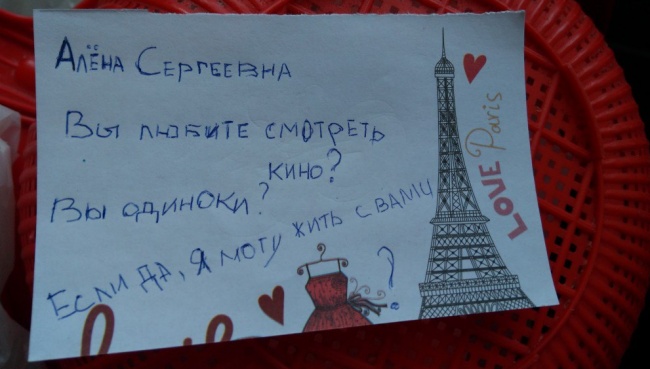 Алёна Сергеевна
Вы любите смотреть
кино?
Вы одиноки?
Если да, я могу жить с вами
?
LOVE Paris
love